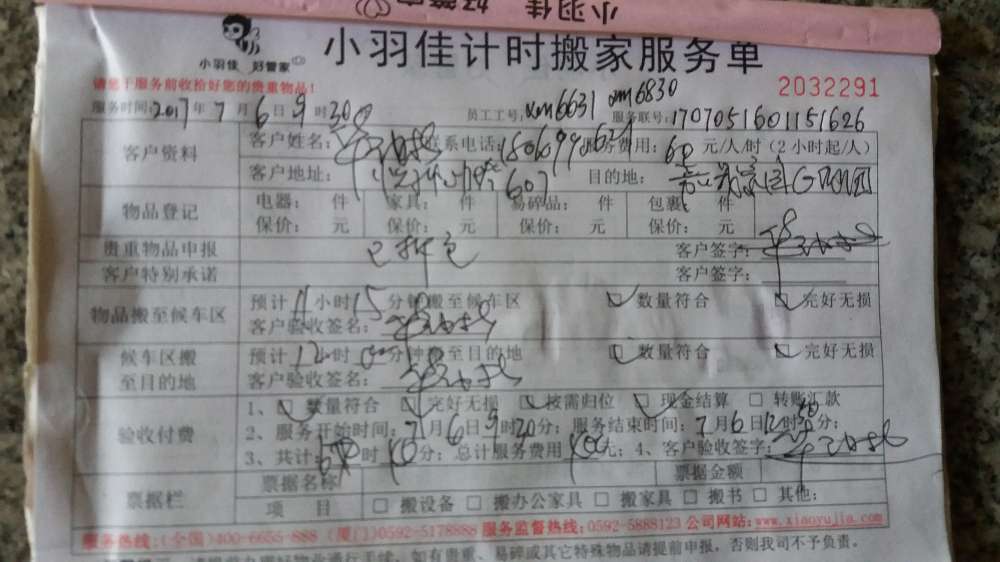 小羽佳 好管家
小羽佳计时搬家服务单
请您于服务前收拾好您的贵重物品!
2032291
服务时间:2017年7月6日9时30 员工工号:xm6631 xm6830 服务联号:1707051601151626
客户资料
客户姓名: 联系电话: 服务费用: 元/人/时(2小时起/人)
客户地址: 607 目的地:
物品登记
电器: 件 家具: 件 易碎品: 件 包裹: 件
保价: 元 保价: 元 保价: 元 保价: 元
贵重物品申报 已拆包 客户签字:
客户特别承诺 客户签字:
物品搬至候车区
预计11小时15分钟搬至候车区 数量符合 完好无损
客户验收签名:
候车区搬至目的地
预计12小时 分钟搬至目的地 数量符合 完好无损
客户验收签名:
验收付费
1、 数量符合 完好无损 按需归位 现金结算 转账汇款
2、服务开始时间:7月6日9时30分; 服务结束时间:7月6日12时 分;
3、共计: 时 分; 总计服务费用 元; 4、客户验收签字:
票据栏
票据名称 票据金额
项 目 □ 搬设备 □ 搬办公家具 □ 搬家具 □ 搬书 □ 其他:
服务热线:(全国)400-6655-888 (厦门)0592-5178888 服务监督热线:0592-5888123 公司网站:www.xiaoyujia.com
如有贵重、易碎或其它特殊物品请提前申报,否则我司不予负责。